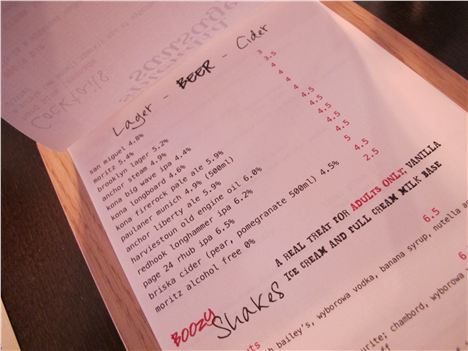 Cocktails
Lager - BEER - Cider
san miguel 4.8% 3
moritz 5.4%
brooklyn lager 5.2% 4
anchor steam 4.9% 4
kona big wave ipa 4.4% 4
kona longboard 4.6% 4
kona firerock pale ale 5.9% 4.5
paulaner munich 4.9% (500ml) 4.5
anchor liberty ale 5.9% 4.5
harviestoun old engine oil 6.0% 4.5
redhook longhammer ipa 6.2% 4.5
page 24 rhub ipa 6.5% 5
briska cider (pear, pomegranate 500ml) 4.5% 4.5
moritz alcohol free 0% 2.5
BOOZY Shakes
A REAL TREAT FOR ADULTS ONLY. VANILLA
ICE CREAM AND FULL CREAM MILK BASE
6.5
bailey's, wyborowa vodka, banana syrup, nutella
chambord, wyborowa